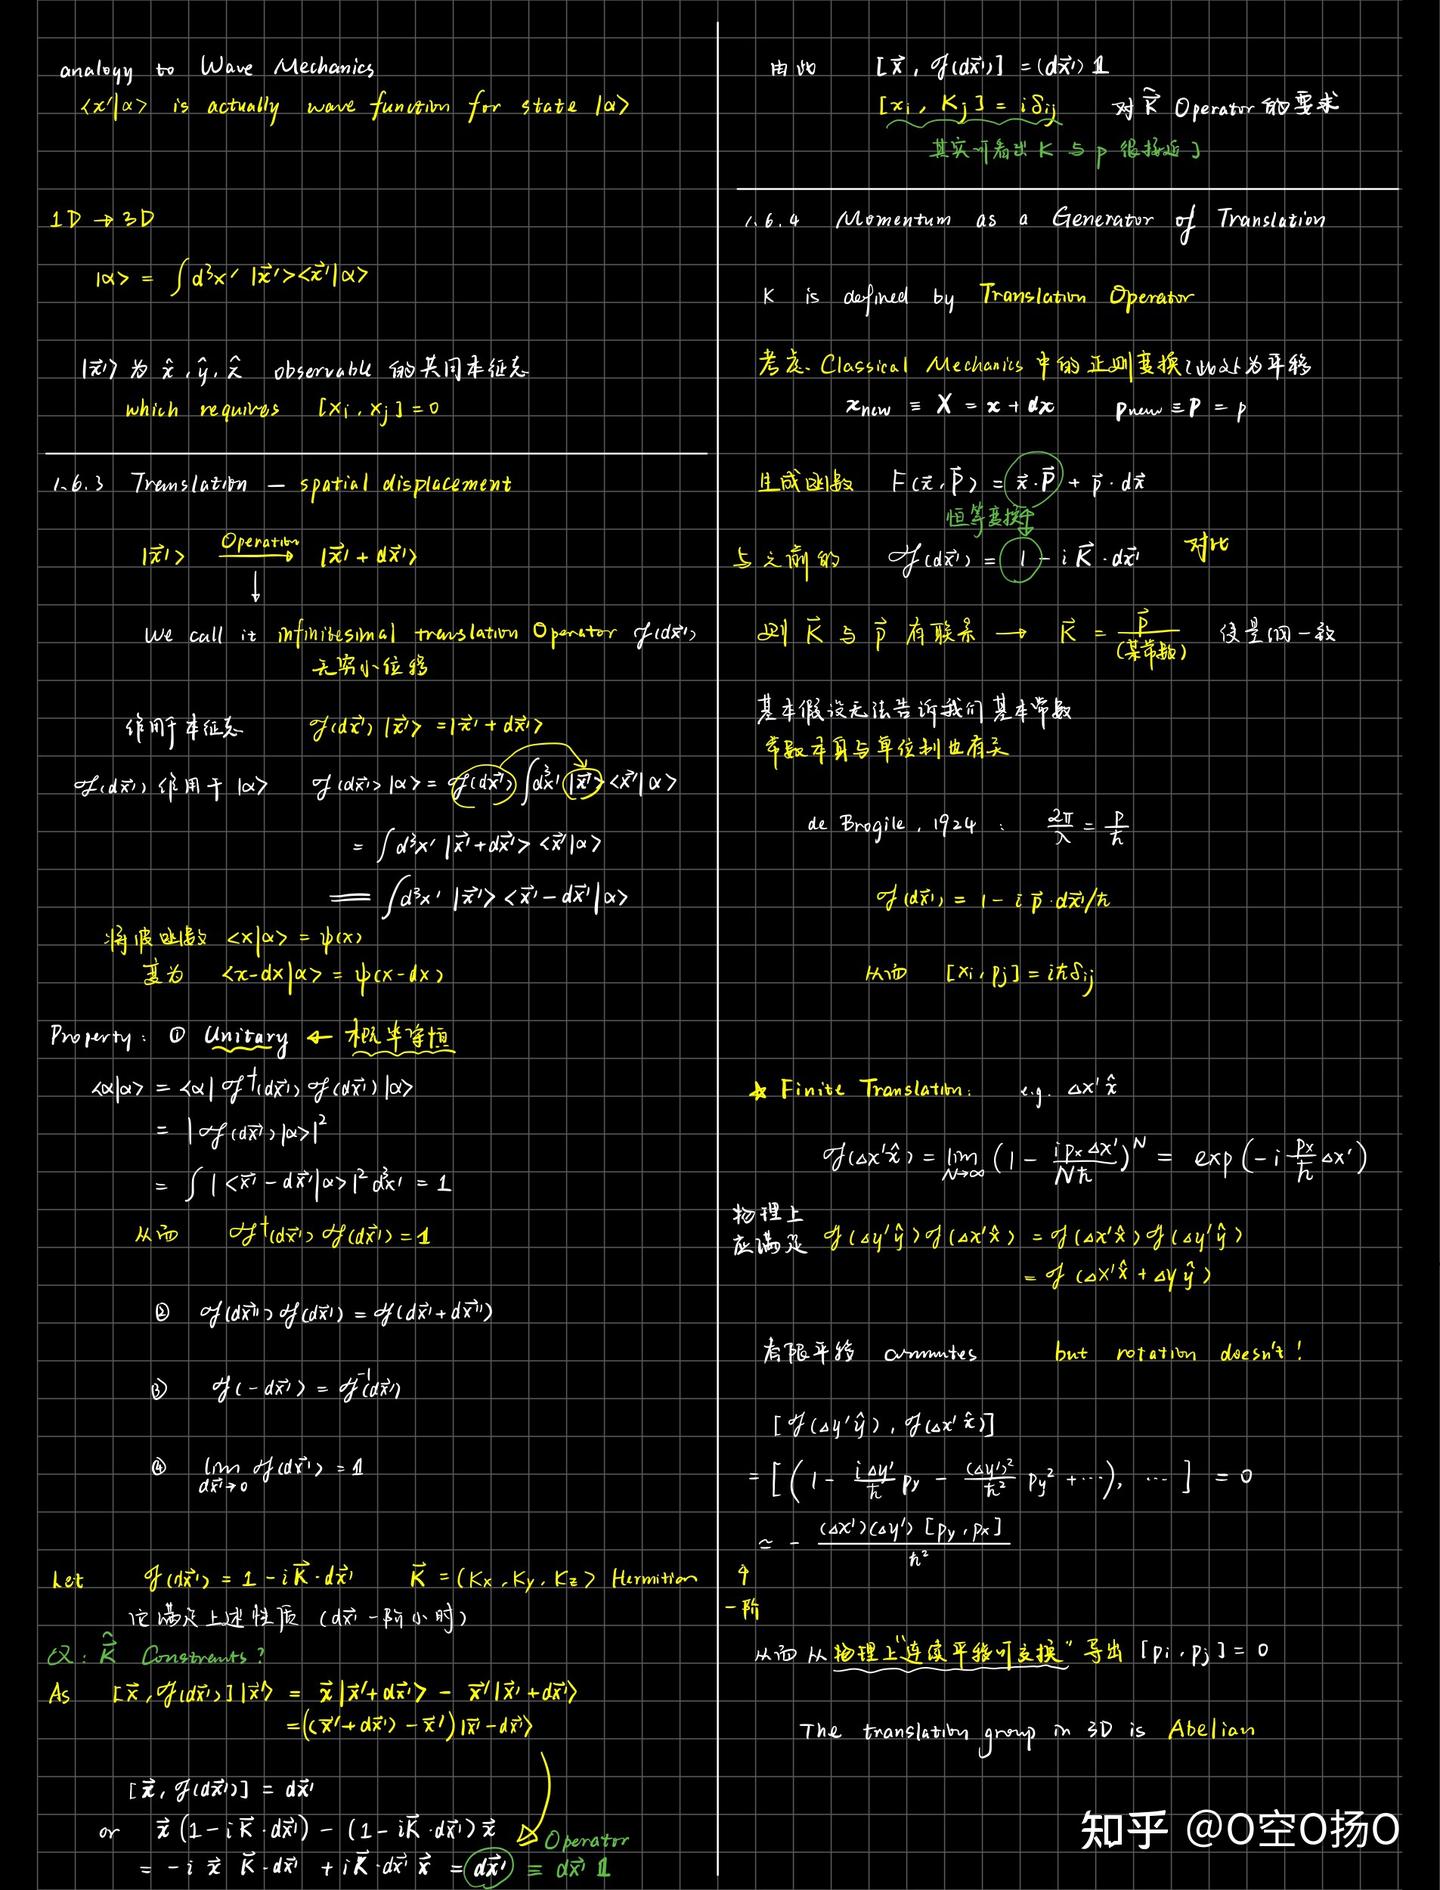 analogy to Wave Mechanics
<x'|α> is actually wave function for state |α>
1D → 3D
|α> = ∫d³x' |x⃗'><x⃗'|α>
|x⃗'> 为 x̂, ŷ, ẑ observable 的共同本征态
which requires [xi, xj] = 0
1.6.3 Translation — spatial displacement
|x⃗'> Operation→ |x⃗' + dx⃗'>
↓
We call it infinitesimal translation Operator 𝒥(dx⃗')
无穷小位移
作用于本征态 𝒥(dx⃗') |x⃗'> = |x⃗' + dx⃗'>
𝒥(dx⃗') 作用于 |α> 𝒥(dx⃗') |α> = 𝒥(dx⃗') ∫d³x' |x⃗'> <x⃗'|α>
= ∫d³x' |x⃗' + dx⃗'> <x⃗'|α>
= ∫d³x' |x⃗'> <x⃗' - dx⃗'|α>
将波函数 <x|α> = ψ(x)
变为 <x-dx|α> = ψ(x-dx)
Property: ① Unitary ← 概率守恒
<α|α> = <α| 𝒥†(dx⃗') 𝒥(dx⃗') |α>
= |𝒥(dx⃗')|α>|²
= ∫ |<x⃗' - dx⃗'|α>|² d³x' = 1
从而 𝒥†(dx⃗') 𝒥(dx⃗') = 𝟙
② 𝒥(dx⃗'') 𝒥(dx⃗') = 𝒥(dx⃗' + dx⃗'')
③ 𝒥(-dx⃗') = 𝒥⁻¹(dx⃗')
④ lim dx⃗'→0 𝒥(dx⃗') = 𝟙
Let 𝒥(dx⃗') = 1 - iK⃗·dx⃗' K⃗ = (Kx, Ky, Kz) Hermitian
它满足上述性质 (dx⃗' 一阶小时)
Q: K⃗̂ Constraints?
As [x⃗, 𝒥(dx⃗')] |x⃗'> = x⃗ |x⃗' + dx⃗'> - x⃗' |x⃗' + dx⃗'>
= ((x⃗' + dx⃗') - x⃗') |x⃗' - dx⃗'>
[x⃗, 𝒥(dx⃗')] = dx⃗'
or x⃗ (1 - iK⃗·dx⃗') - (1 - iK⃗·dx⃗') x⃗
= -i x⃗ K⃗·dx⃗' + iK⃗·dx⃗' x⃗ = dx⃗' ≡ dx⃗' 𝟙
Operator
由此 [x⃗, 𝒥(dx⃗')] = (dx⃗') 𝟙
[xi, Kj] = iδij 对 K⃗̂ Operator 的要求
其实可看出 K 与 p 很接近
1.6.4 Momentum as a Generator of Translation
K is defined by Translation Operator
考虑 Classical Mechanics 中的正则变换, 此处为平移
xnew ≡ X = x + dx pnew ≡ P = p
生成函数 F(x⃗, P⃗) = x⃗·P⃗ + p⃗·dx⃗
恒等变换
与之前的 𝒥(dx⃗') = 1 - iK⃗·dx⃗' 对比
则 K⃗ 与 p⃗ 有联系 → K⃗ = p⃗/(某常数) 使量纲一致
基本假设无法告诉我们基本常数
常数本身与单位制也有关
de Brogile, 1924 : 2π/λ = p/ħ
𝒥(dx⃗') = 1 - i p⃗·dx⃗'/ħ
从而 [xi, pj] = iħδij
★ Finite Translation: e.g. Δx' x̂
𝒥(Δx'x̂) = lim N→∞ (1 - i px Δx'/Nħ)^N = exp(-i px/ħ Δx')
物理上
应满足 𝒥(Δy'ŷ) 𝒥(Δx'x̂) = 𝒥(Δx'x̂) 𝒥(Δy'ŷ)
= 𝒥(Δx'x̂ + Δy ŷ)
有限平移 commutes but rotation doesn't!
[𝒥(Δy'ŷ), 𝒥(Δx'x̂)]
= [(1 - iΔy'/ħ py - (Δy')²/ħ² py² + ⋯), ⋯] = 0
≃ - (Δx')(Δy') [py, px]/ħ²
↑
一阶
从而从物理上"连续平移可交换" 导出 [pi, pj] = 0
The translation group in 3D is Abelian
知乎 @O空O扬O